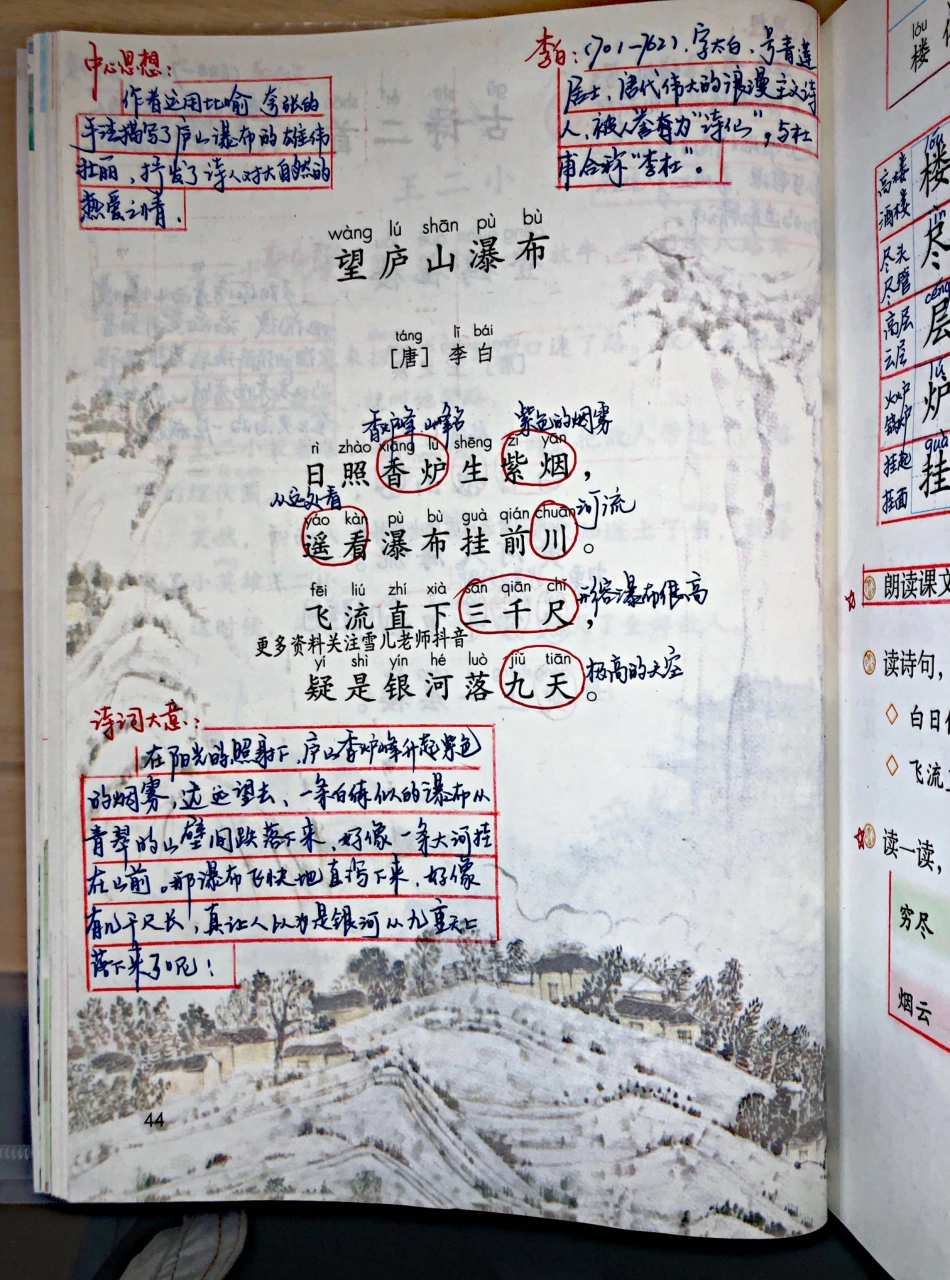 中心思想：
作者运用比喻、夸张的
手法描写了庐山瀑布的雄伟
壮丽，抒发了诗人对大自然的
热爱之情。
李白：(701-762)，字太白，号青莲
居士，唐代伟大的浪漫主义诗
人，被人誉为“诗仙”，与杜
甫合称“李杜”。
wàng lú shān pù bù
望庐山瀑布
táng lǐ bái
［唐］李白
香炉峰，山峰名 紫色的烟雾
rì zhào xiāng lú shēng zǐ yān
日照香炉生紫烟，
从远处看
yáo kàn pù bù guà qián chuān 河流
遥看瀑布挂前川。
fēi liú zhí xià sān qiān chǐ
飞流直下三千尺， 形容瀑布很高
更多资料关注雪儿老师抖音
yí shì yín hé luò jiǔ tiān
疑是银河落九天。 极高的天空
诗词大意：
在阳光的照射下，庐山香炉峰升起紫色
的烟雾，远远望去、一条白练似的瀑布从
青翠的山壁间跌落下来，好像一条大河挂
在山前。那瀑布飞快地直泻下来，好像
有几千尺长，真让人以为是银河从九重天上
落下来了呢！
44
lóu
楼
高楼
酒楼
lóu
楼
尽头
尽管
尽
高层
云层
céng
层
火炉
铁炉
lú
炉
挂起
挂面
guà
挂
朗读课文
读诗句，
白日依
飞流
读一读，
穷尽
烟云